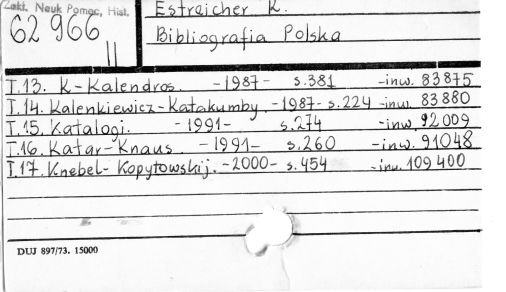 Zakł. Nauk Pomoc. Hist.
62 966
II
Estreicher K.
Bibliografia Polska
T.13. K-Kalendros. -1987- s.381 -inw. 83875
T.14. Kalenkiewicz-Katakumby. -1987- s.224 -inw. 83880
T.15. Katalogi. -1991- s.274 -inw. 92009
T.16. Katar-Knaus. -1991- s.260 -inw. 91048
T.17. Knebel-Kopytowskij. -2000- s.454 -inw. 109400
DUJ 897/73. 15000